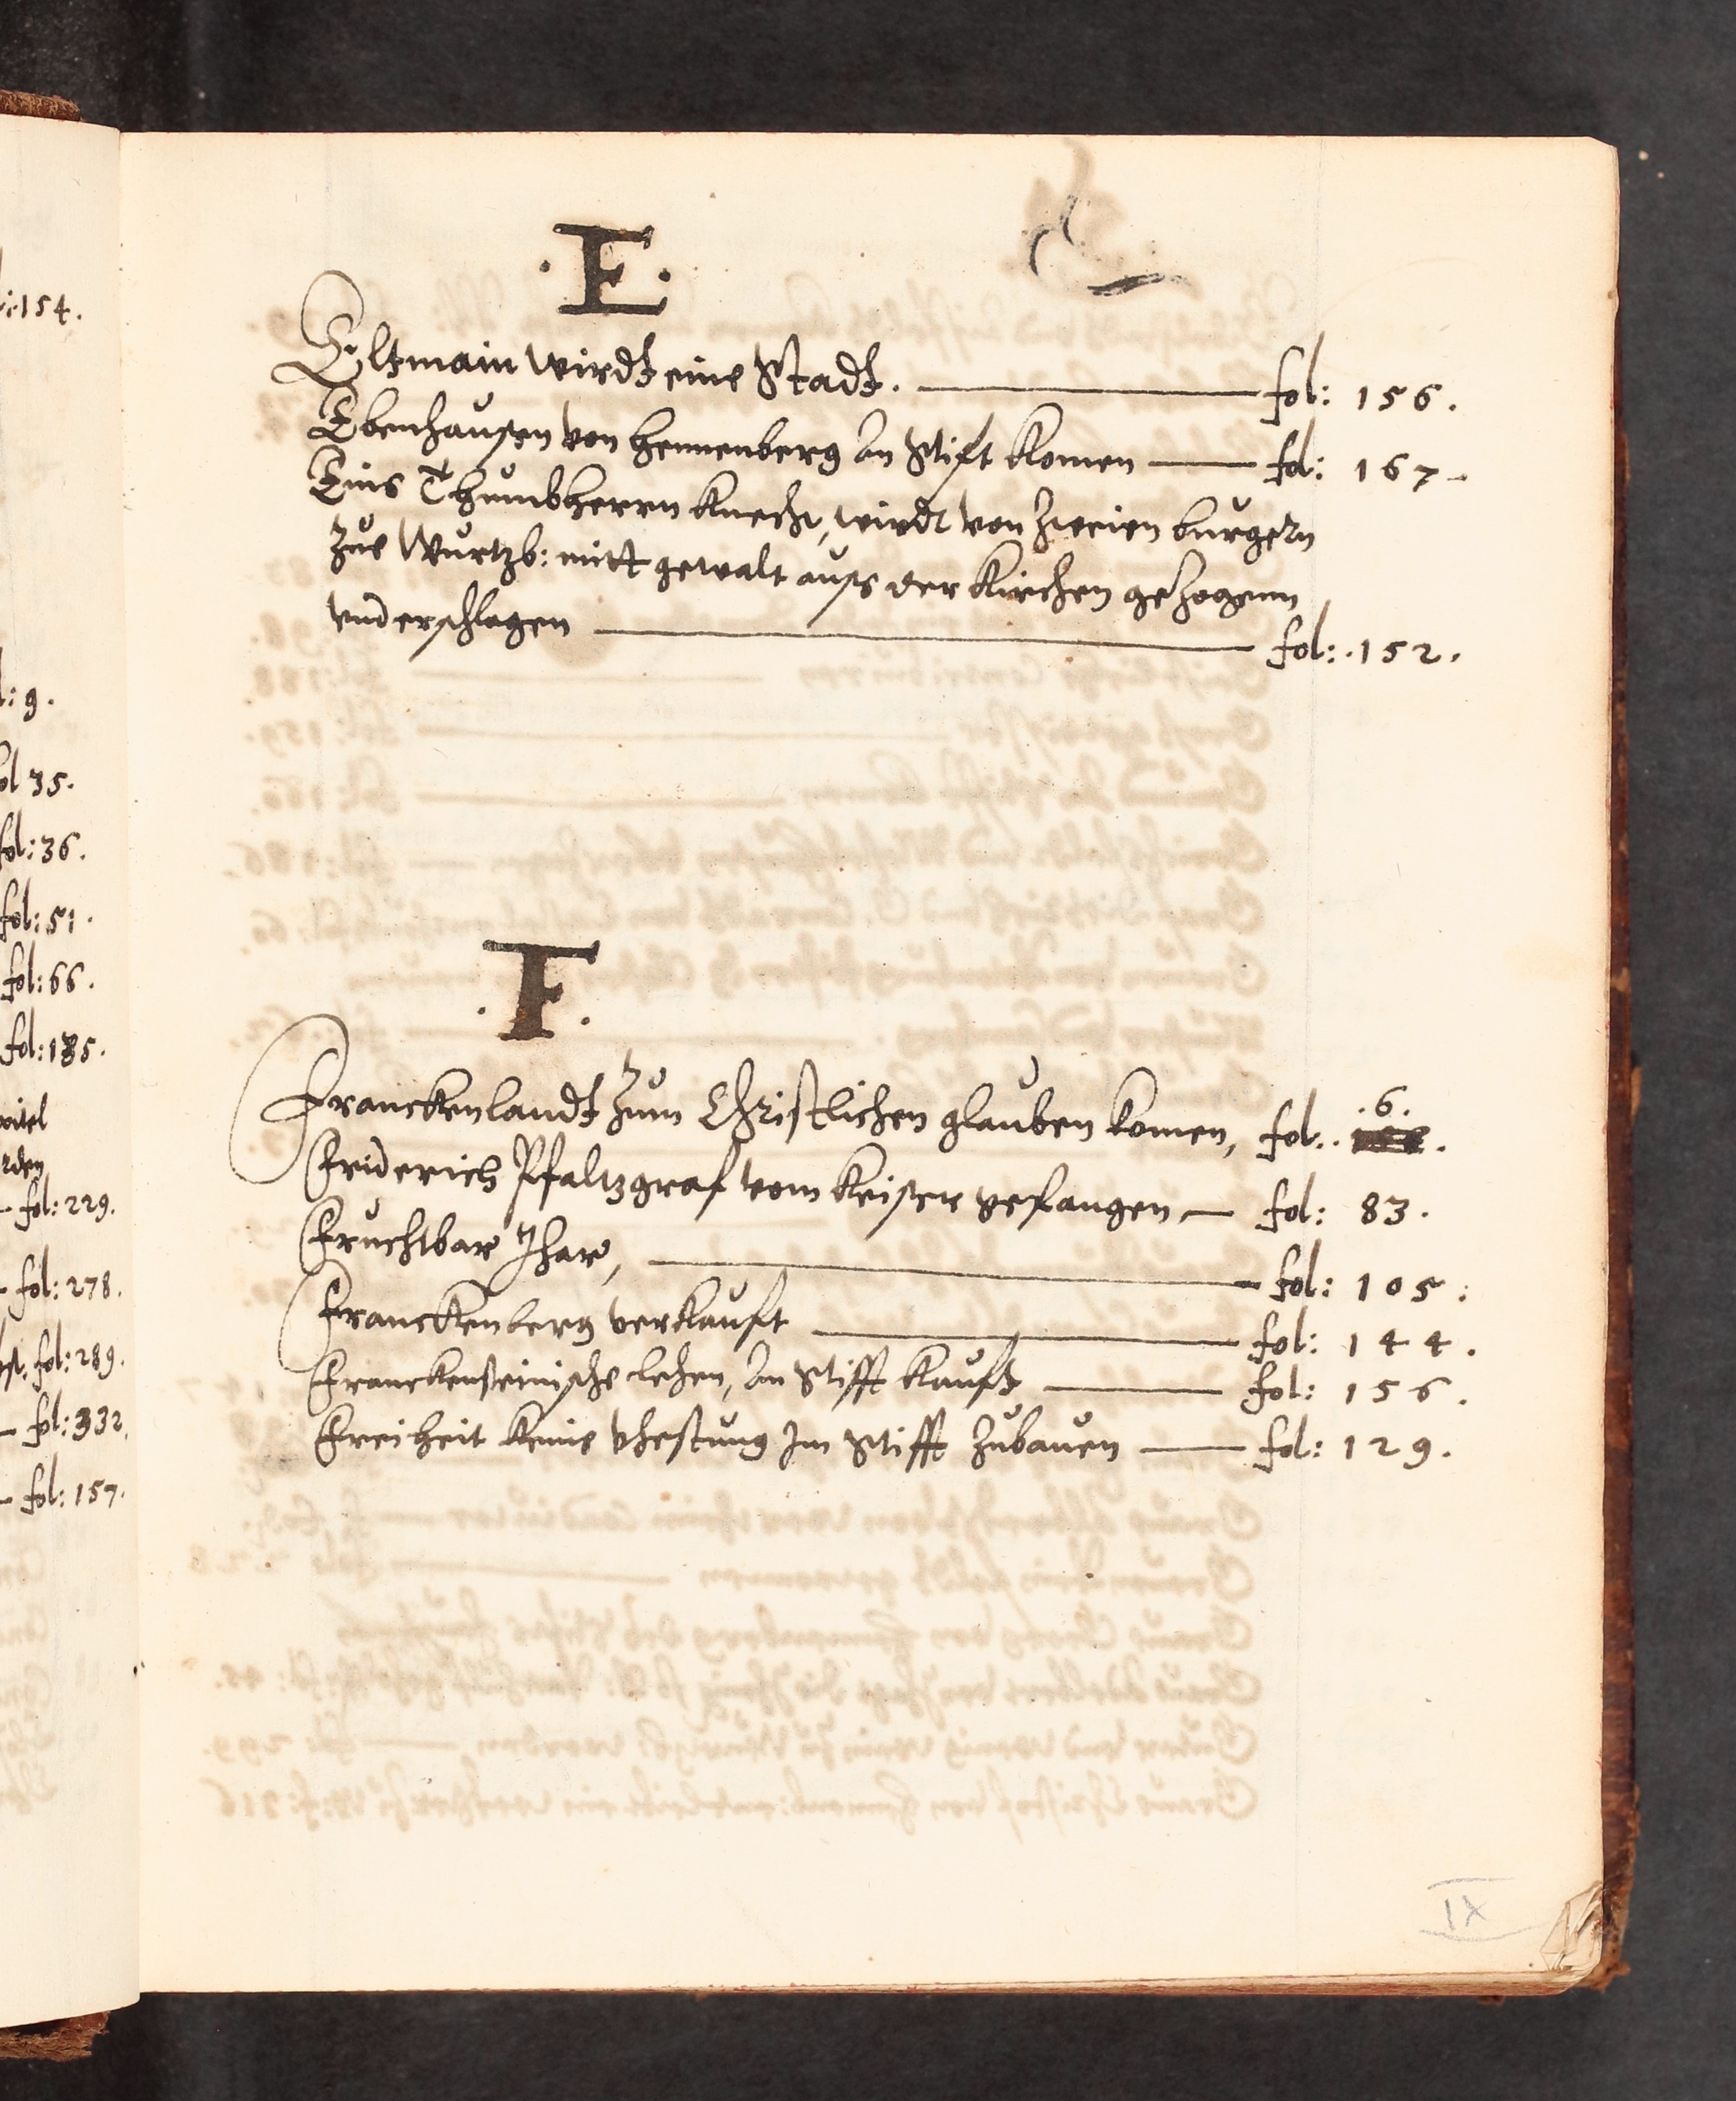 .E.
Eltzmain wirdt eine Stadt. fol: 156.
Ebenhausen von Hennenberg An Stift Komen fol: 167
Eins Thumbherrn Knecht, wirdt von Zweien burgern
Zue Wurtzb: mitt gewalt auss der Kirchen geZogenn
vnd erschlagen fol: 152.
.F.
.6.
Franckenlandt Zum Christlichen glauben Komen, fol:
Friderich Pfaltzgraf vom Keiser gefangen, fol: 83.
Fruchtbar Jhar, fol: 105:
Franckenberg verkauft fol: 144.
Franckensteinische lehen, An Stifft Kauft fol: 156.
Freiheit Keine Vhestung Im Stifft Zubauen fol: 129.
IX
:154.
: 9.
fol 35.
fol: 36.
fol: 51.
fol: 66.
fol: 135.
fol: 229.
fol: 278.
fol: 289.
fol: 332.
fol: 157.